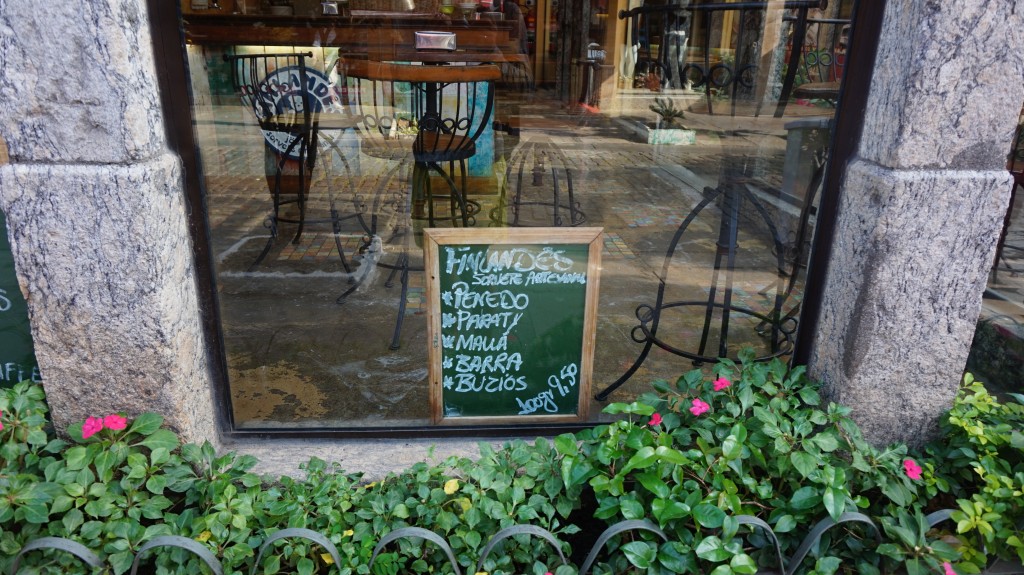 FINLANDÊS
SORVETE ARTESANAL
*PENEDO
*PARATY
*MAUÁ
*BARRA
*BÚZIOS
100gr 9,50